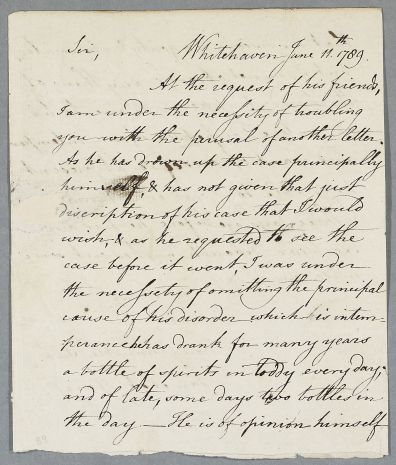 Sir, Whitehaven June 11.th 1789.
At the request of his friends,
I am under the necessity of troubling
you with the parusal of another letter.
As he has drawn up the case principally
himself, & has not given that just
discription of his case that I would
wish, & as he requested to see the
case before it went, I was under
the necessety of omitting the principal
cause of his disorder which is intem-
perance he has drank for many years
a bottle of spirits in toddy every day;
and of late, some days two bottles in
the day — He is of opinion himself